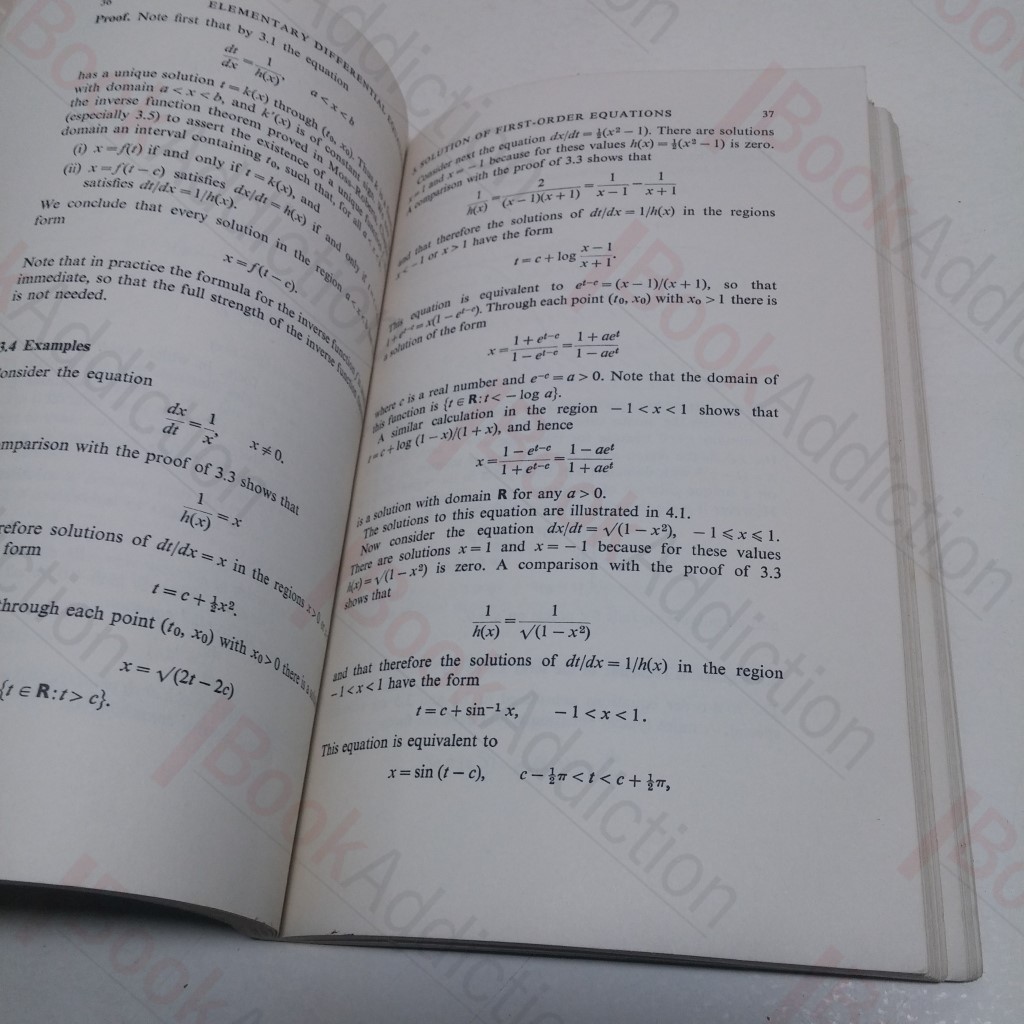 36
ELEMENTARY DIFFERENTIAL EQUA
Proof. Note first that by 3.1 the equation
dt/dx = 1/h(x), a < x < b
has a unique solution t = k(x) through (t₀, x₀). Thus k is
with domain a < x < b, and k′(x) is of constant sign.
the inverse function theorem proved in Moss-Roberts,
(especially 3.5) to assert the existence of a unique function
domain an interval containing t₀, such that, for all a <
(i) x = f(t) if and only if t = k(x), and
(ii) x = f(t − c) satisfies dx/dt = h(x) if and only if t
satisfies dt/dx = 1/h(x).
We conclude that every solution in the region a <
form
x = f(t − c).
Note that in practice the formula for the inverse function
immediate, so that the full strength of the inverse function
is not needed.
3.4 Examples
onsider the equation
dx/dt = 1/x, x ≠ 0.
mparison with the proof of 3.3 shows that
1/h(x) = x
refore solutions of dt/dx = x in the regions x > 0
form
t = c + ½x².
hrough each point (t₀, x₀) with x₀ > 0 there is a
x = √(2t − 2c)
{t ∈ R : t > c}.
SOLUTION OF FIRST-ORDER EQUATIONS 37
Consider next the equation dx/dt = ½(x² − 1). There are solutions
x = 1 and x = − 1 because for these values h(x) = ½(x² − 1) is zero.
A comparison with the proof of 3.3 shows that
1/h(x) = 2/((x − 1)(x + 1)) = 1/(x − 1) − 1/(x + 1)
and that therefore the solutions of dt/dx = 1/h(x) in the regions
x < − 1 or x > 1 have the form
t = c + log (x − 1)/(x + 1).
This equation is equivalent to eᵗ⁻ᶜ = (x − 1)/(x + 1), so that
1 + eᵗ⁻ᶜ = x(1 − eᵗ⁻ᶜ). Through each point (t₀, x₀) with x₀ > 1 there is
a solution of the form
x = (1 + eᵗ⁻ᶜ)/(1 − eᵗ⁻ᶜ) = (1 + aeᵗ)/(1 − aeᵗ)
where c is a real number and e⁻ᶜ = a > 0. Note that the domain of
this function is {t ∈ R : t < − log a}.
A similar calculation in the region − 1 < x < 1 shows that
t = c + log (1 − x)/(1 + x), and hence
x = (1 − eᵗ⁻ᶜ)/(1 + eᵗ⁻ᶜ) = (1 − aeᵗ)/(1 + aeᵗ)
is a solution with domain R for any a > 0.
The solutions to this equation are illustrated in 4.1.
Now consider the equation dx/dt = √(1 − x²), − 1 ⩽ x ⩽ 1.
There are solutions x = 1 and x = − 1 because for these values
h(x) = √(1 − x²) is zero. A comparison with the proof of 3.3
shows that
1/h(x) = 1/√(1 − x²)
and that therefore the solutions of dt/dx = 1/h(x) in the region
− 1 < x < 1 have the form
t = c + sin⁻¹ x, − 1 < x < 1.
This equation is equivalent to
x = sin (t − c), c − ½π < t < c + ½π,
BookAddiction